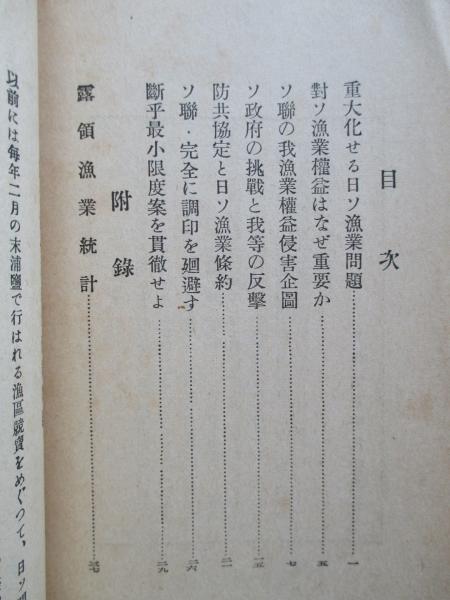 目次
重大化せる日ソ漁業問題……一
對ソ漁業權益はなぜ重要か……五
ソ聯の我漁業權益侵害企圖……七
ソ政府の挑戰と我等の反擊……一五
防共協定と日ソ漁業條約……二一
ソ聯・完全に調印を廻避す……二六
斷乎最小限度案を貫徹せよ……二九
附錄
露領漁業統計……三七
以前には每年二月の末浦鹽で行はれる漁區競賣をめぐつて、日ソ間